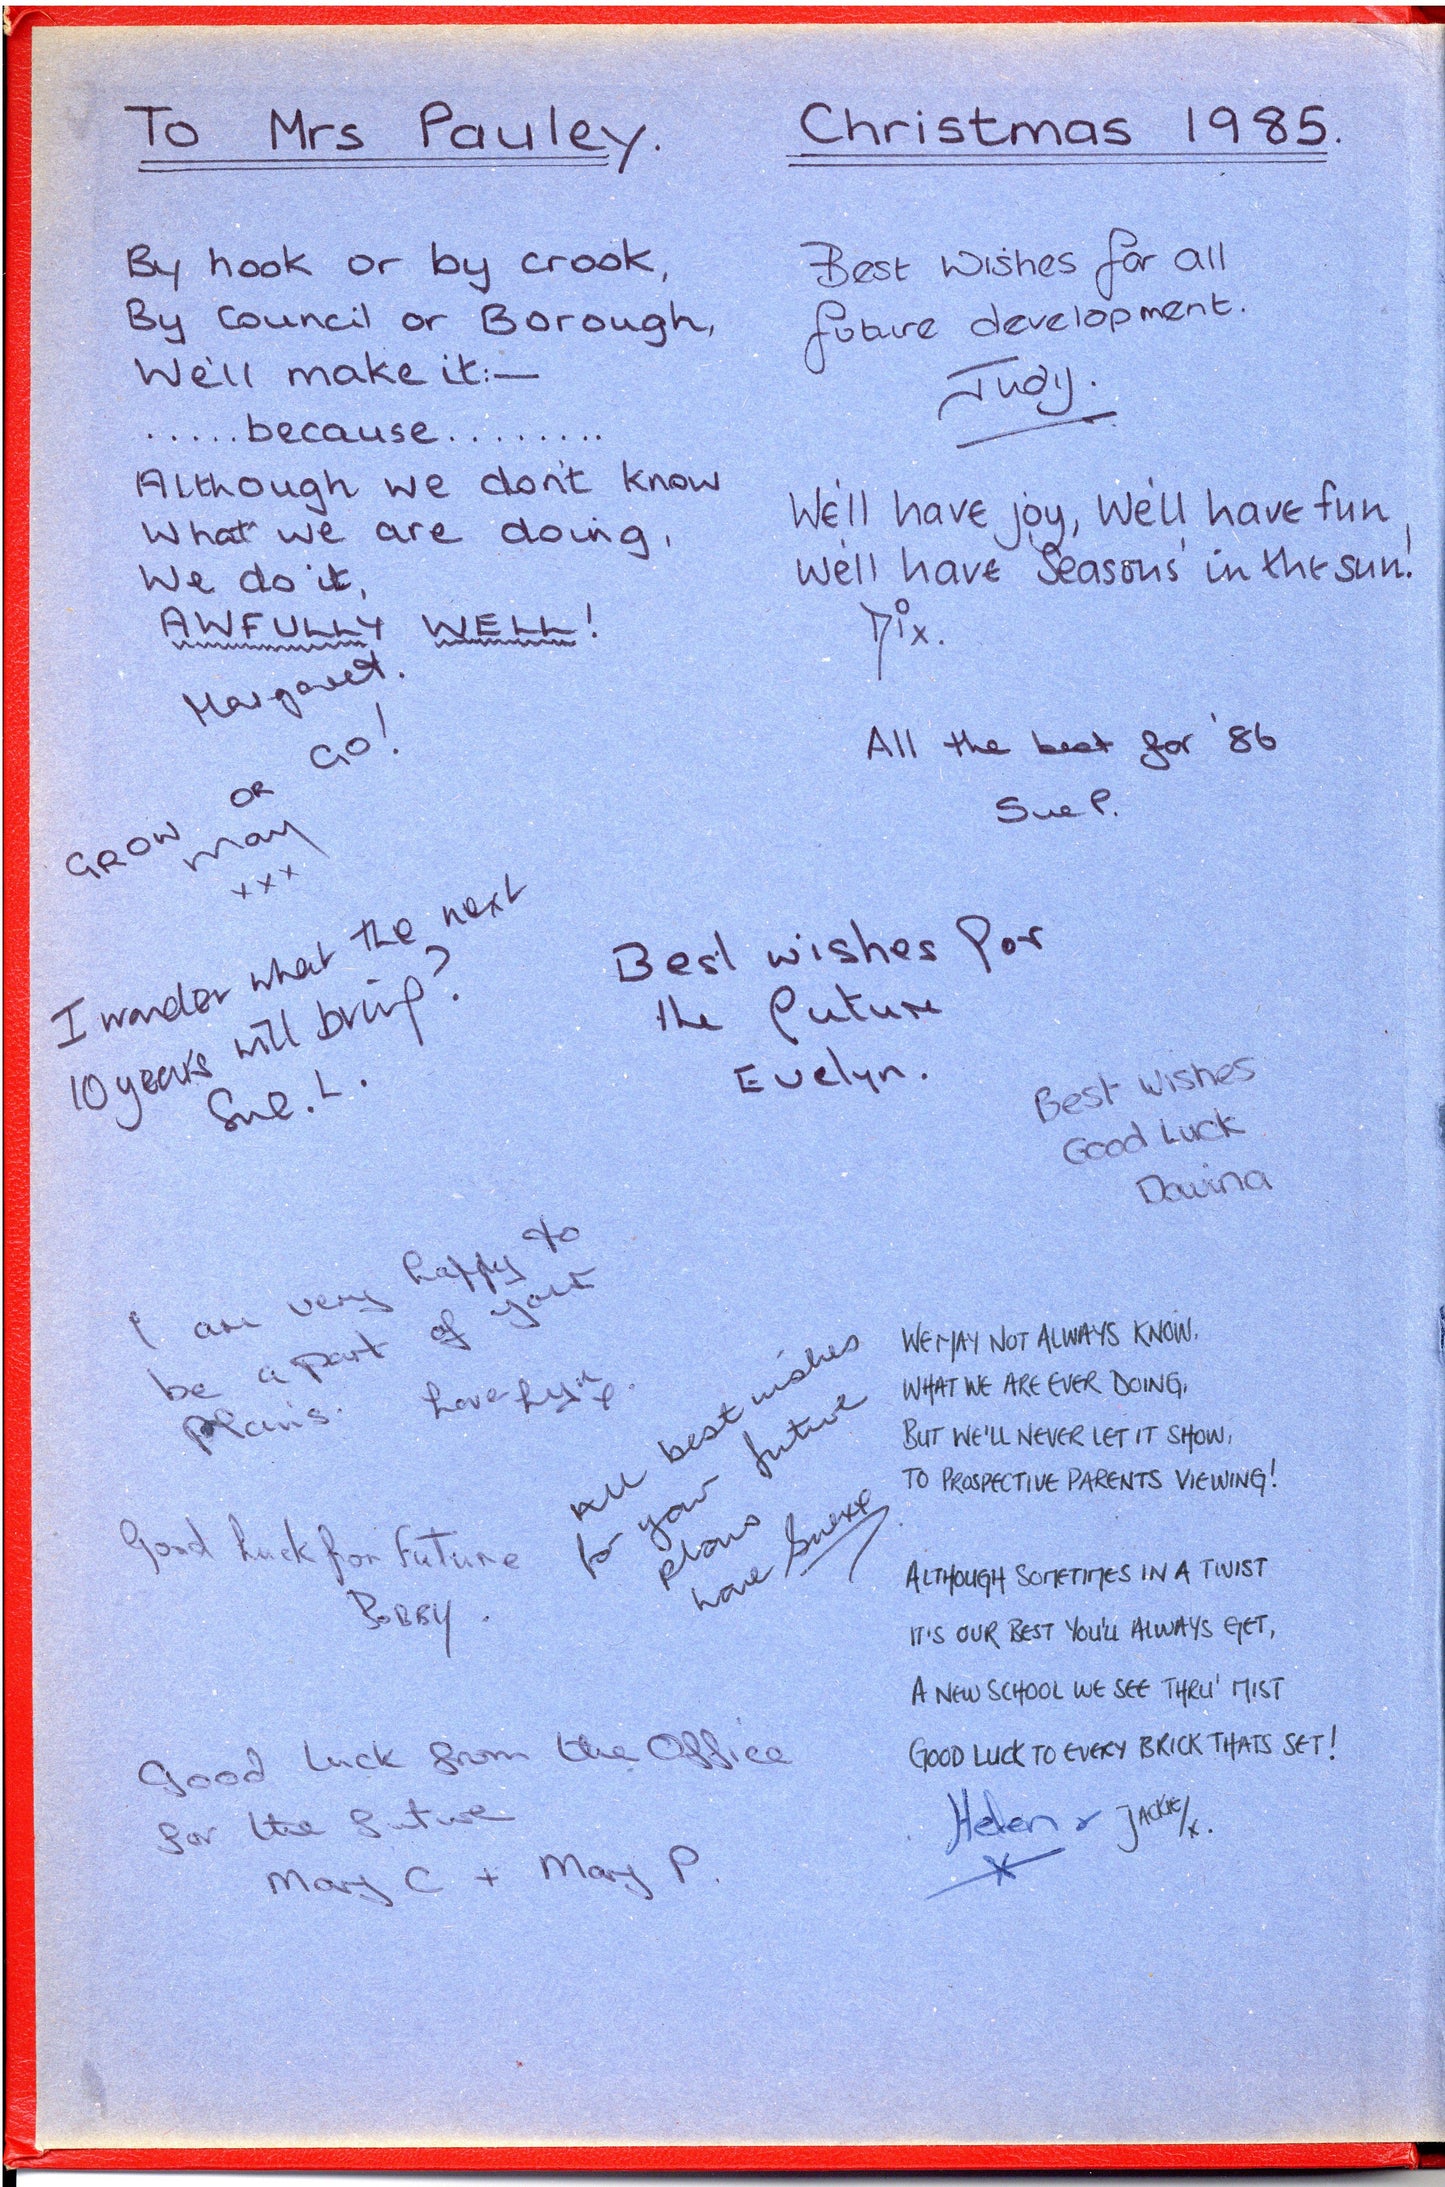 To Mrs Pauley.
Christmas 1985.
By hook or by crook,
By Council or Borough,
We'll make it:—
.....because.........
Although we don't know
What we are doing,
We do it,
AWFULLY WELL!
Margaret.
GROW OR GO!
Mary
xxx
I wonder what the next
10 years will bring?
Sue.L.
I am very happy to
be a part of your
plans. Love Lyn
Good Luck for Future
BOBBY.
Good luck from the Office
for the future
Mary C + Mary P.
Best Wishes for all
future development.
Judy.
We'll have joy, We'll have fun,
We'll have 'Seasons' in the sun!
Pix.
All the best for '86
Sue P.
Best wishes for
the future
Evelyn.
Best Wishes
Good Luck
Davina
All best wishes
for your future
plans
love Sue xx
WE MAY NOT ALWAYS KNOW,
WHAT WE ARE EVER DOING,
BUT WE'LL NEVER LET IT SHOW,
TO PROSPECTIVE PARENTS VIEWING!
ALTHOUGH SOMETIMES IN A TWIST
IT'S OUR BEST YOU'LL ALWAYS GET,
A NEW SCHOOL WE SEE THRU' MIST
GOOD LUCK TO EVERY BRICK THATS SET!
Helen & JACKIE/x.
x